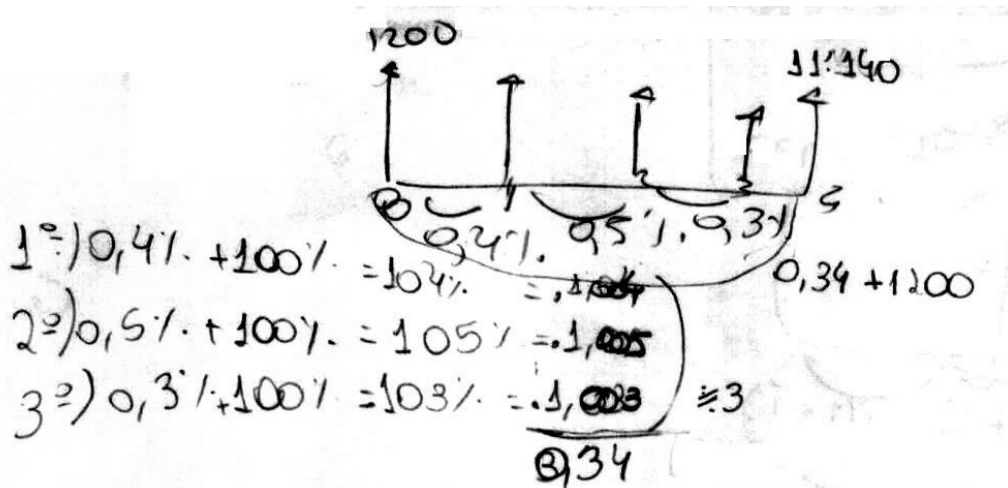 1200
11.140
0 1 2 3
0,4%. 0,5%. 0,3%
0,34 + 1200
1º) 0,4%. + 100%. = 104%. = .1,004
2º) 0,5%. + 100%. = 105% = .1,005
3º) 0,3% + 100% = 103% = .1,003 ÷3
34